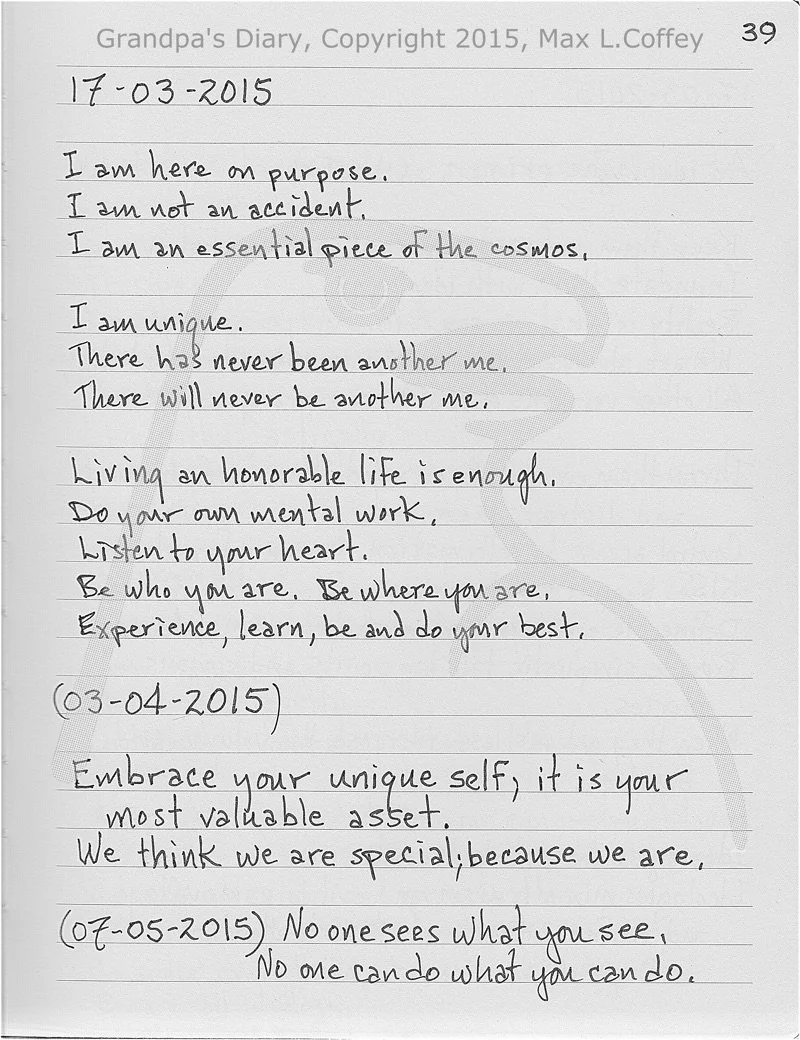 Grandpa's Diary, Copyright 2015, Max L.Coffey
39
17-03-2015
I am here on purpose.
I am not an accident.
I am an essential piece of the cosmos.
I am unique.
There has never been another me.
There will never be another me.
Living an honorable life is enough.
Do your own mental work.
Listen to your heart.
Be who you are. Be where you are.
Experience, learn, be and do your best.
(03-04-2015)
Embrace your unique self; it is your
most valuable asset.
We think we are special; because we are.
(07-05-2015) No one sees what you see.
No one can do what you can do.